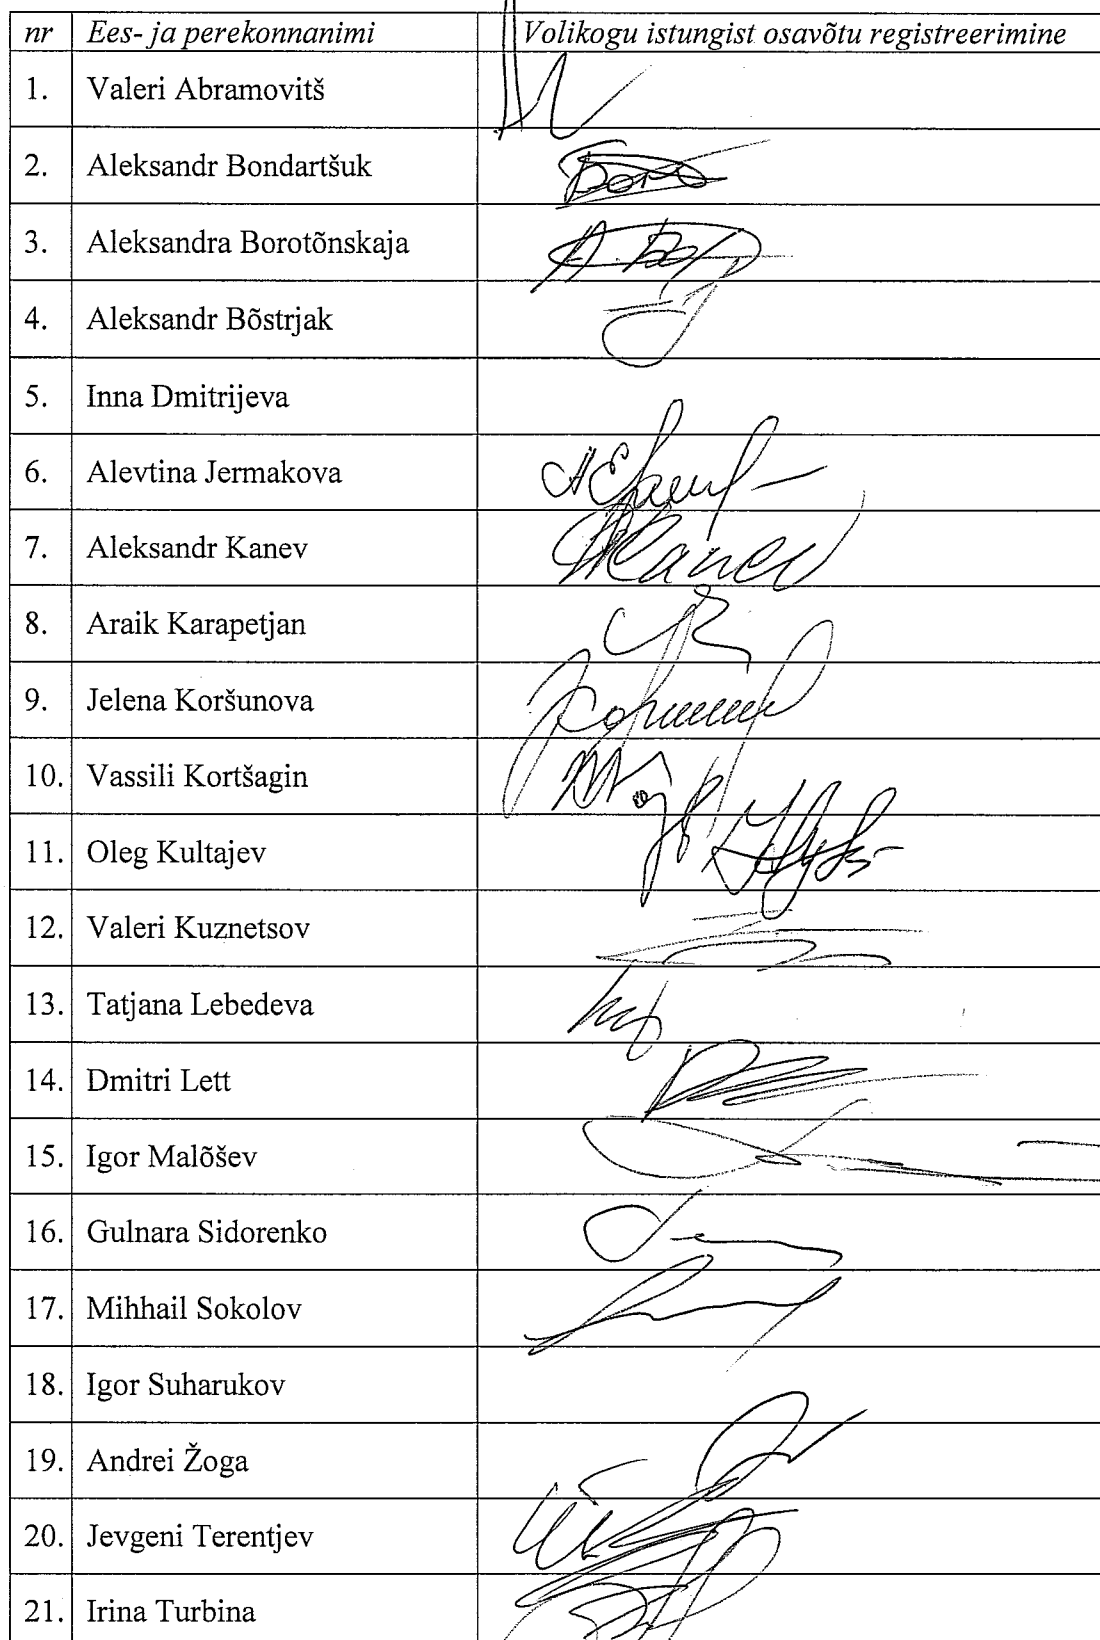 nr Ees- ja perekonnanimi Volikogu istungist osavõtu registreerimine
1. Valeri Abramovitš
2. Aleksandr Bondartšuk
3. Aleksandra Borotõnskaja
4. Aleksandr Bõstrjak
5. Inna Dmitrijeva
6. Alevtina Jermakova
7. Aleksandr Kanev
8. Araik Karapetjan
9. Jelena Koršunova
10. Vassili Kortšagin
11. Oleg Kultajev
12. Valeri Kuznetsov
13. Tatjana Lebedeva
14. Dmitri Lett
15. Igor Malõšev
16. Gulnara Sidorenko
17. Mihhail Sokolov
18. Igor Suharukov
19. Andrei Žoga
20. Jevgeni Terentjev
21. Irina Turbina